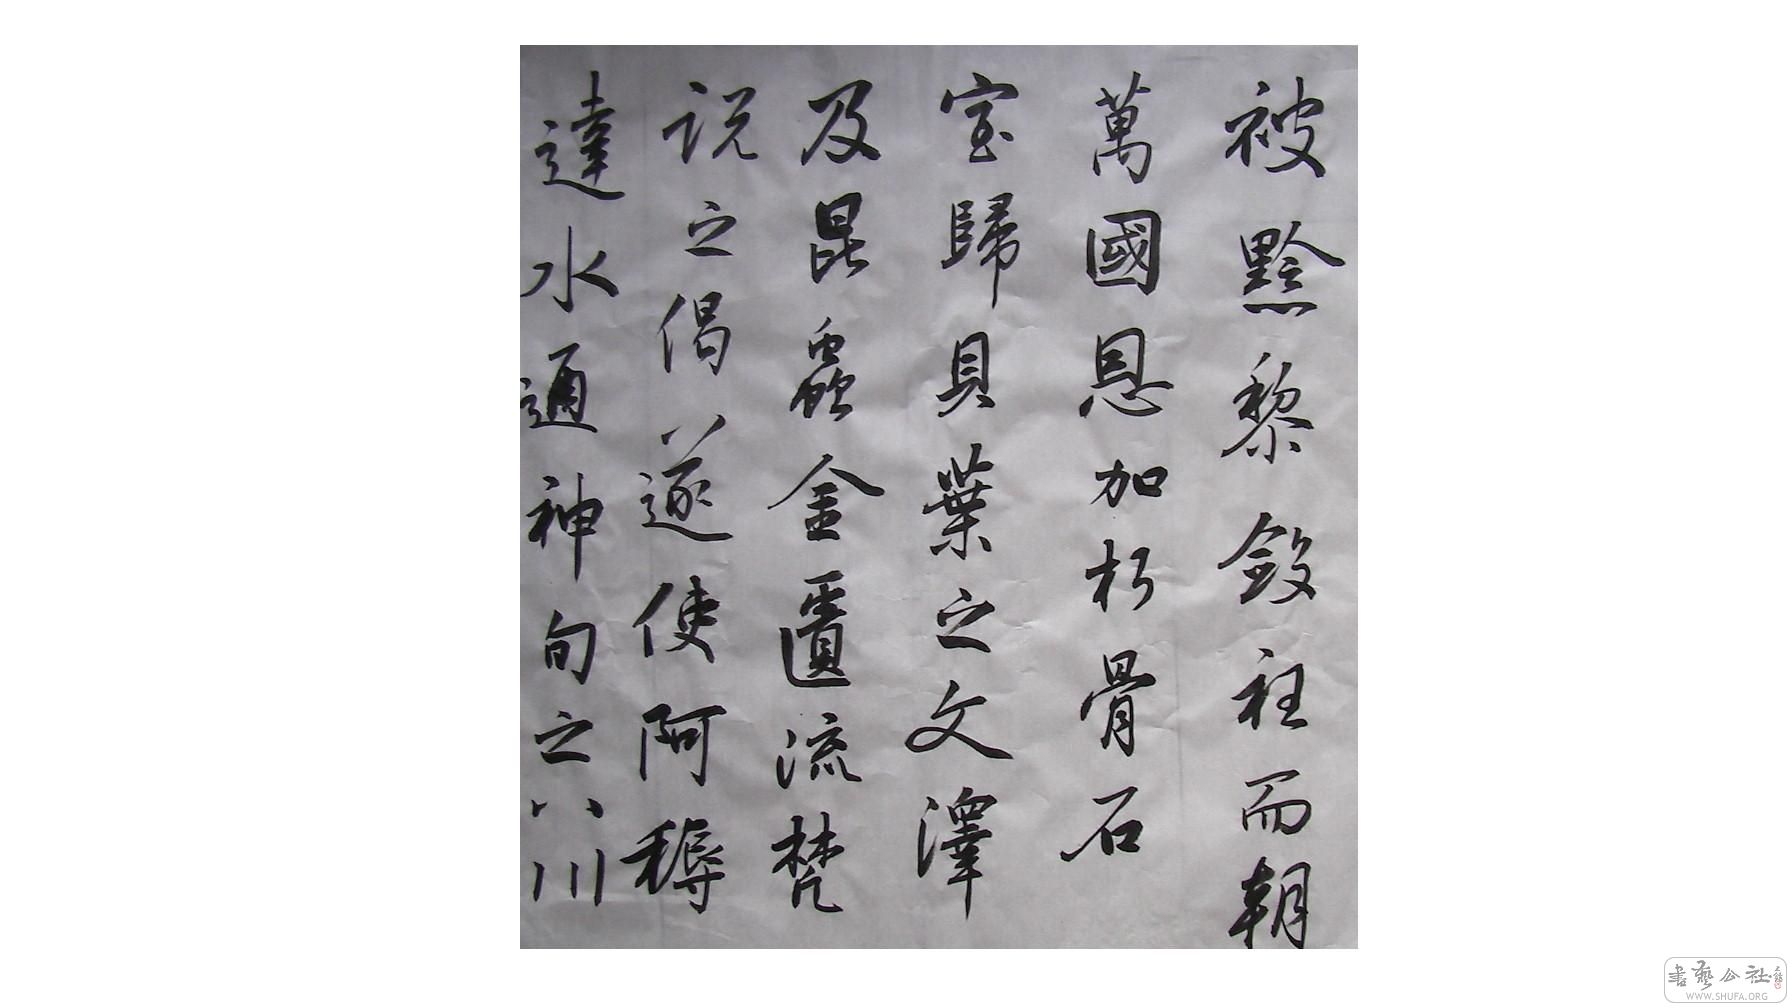 被黔黎斂衽而朝
萬國恩加朽骨石
室歸貝葉之文澤
及昆蟲金匱流梵
说之偈遂使阿耨
達水通神甸之八川
書藝公社
WWW.SHUFA.ORG